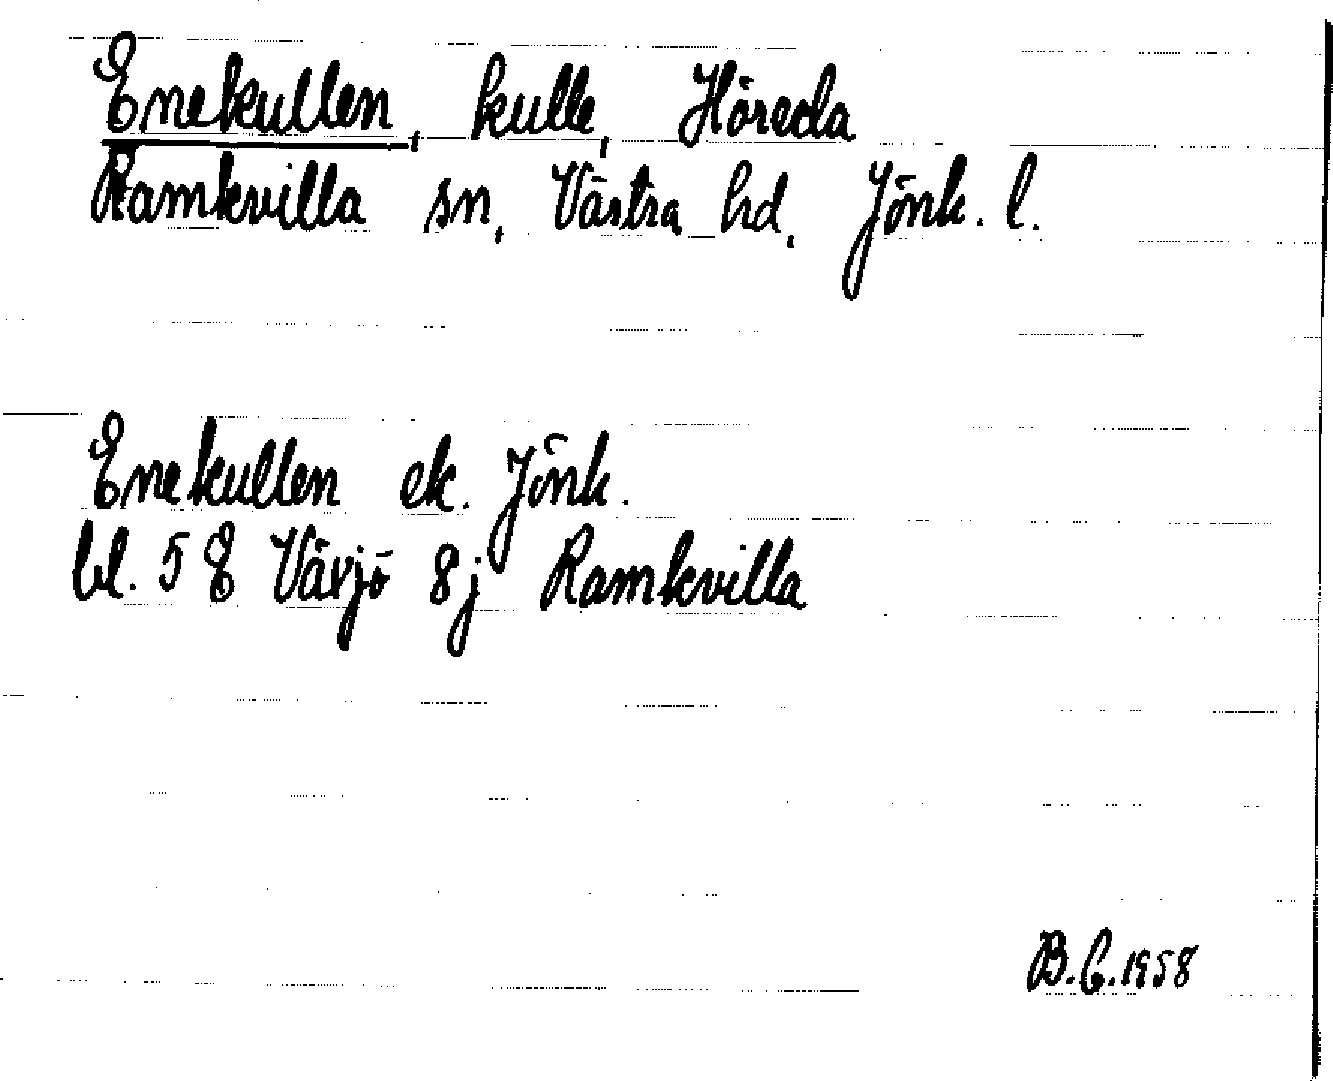 Enekullen, kulle, Höreda
Ramkvilla sn, Västra hd, Jönk. l.
Enekullen ek. Jönk.
bl. 5 E Vävjö 8j Ramkvilla
B.G.1958